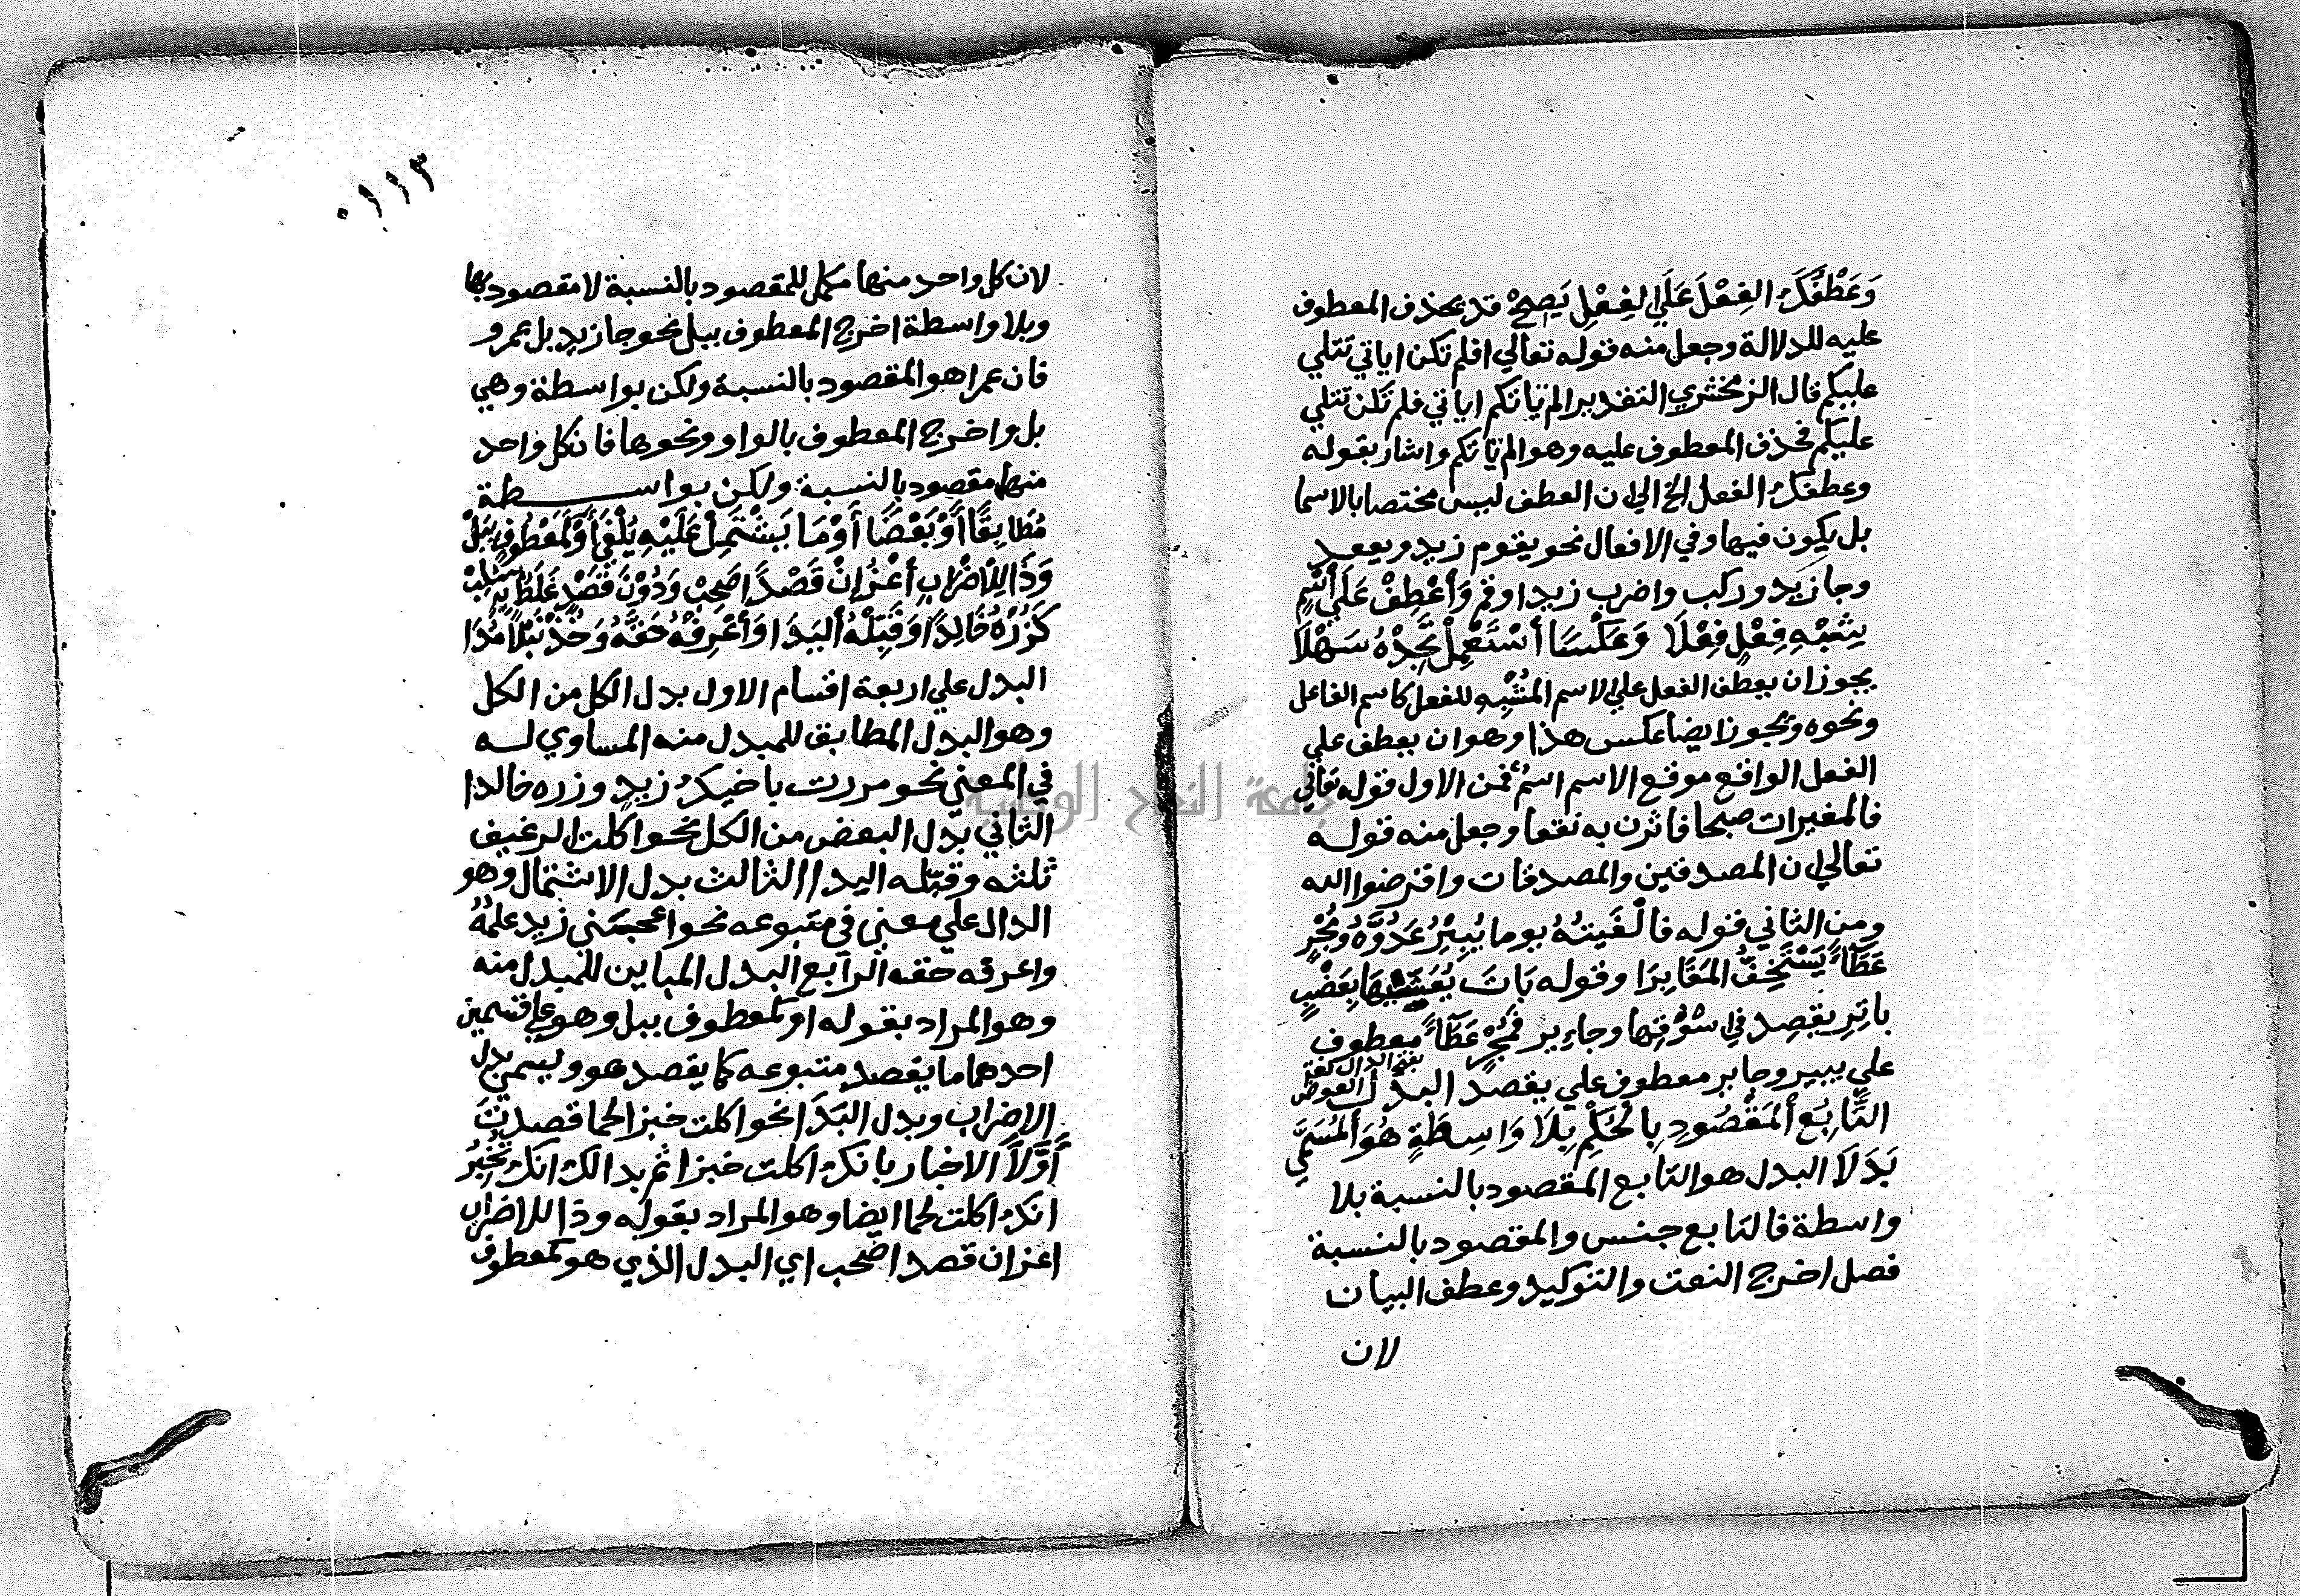 وَعَطْفُكَ الفِعْلَ عَلَي الفِعْلِ يَصِحّْ قد يحذف المعطوف
عليه للدلالة وجعل منه قوله تعالي افلم تكن اياتي تتلي
عليكم قال الزمخشري التقدير الم تاتكم اياتي فلم تكن تتلي
عليكم فحذف المعطوف عليه وهو الم تاتكم واشار بقوله
وعطفك الفعل الخ الي ان العطف ليس مختصا بالاسما
بل يكون فيها وفي الافعال نحو يقوم زيد ويقعد
وجا زيد وركب واضرب زيدا وقم وَأَعْطِفْ عَلَي أَسْمٍ
شِبْهِ فِعْلٍ فِعْلَا وَعَكْسًا أسْتَعْمِلْ تَجِدْهُ سَهْلَا
يجوز ان يعطف الفعل علي الاسم المُشْبِهِ للفعل كاسم الفاعل
ونحوه ويجوز ايضا عكس هذا وهو ان يعطف علي
الفعل الواقع موقع الاسم اسمٌ فمن الاول قوله تعالي
فالمغيرات صبحا فاثرن به نقعا وجعل منه قوله
تعالي ان المصدقين والمصدقات واقرضوا الله
ومن الثاني قوله فالْفَيتُهُ يوما يُبِيْرُ عَدُوَّهُ ومُجْرٍ
عَطَآءً يَسْتَخِفُّ المَعَابِرَا وقوله بَاتَ يُعَشِّيهَا بِعَضْبٍ
باتِرٍ يقصِد في اسْوُقِها وجاءِير فمُجْرٍ عَطَآءً معطوف
علي يبير وجاير معطوف علي يقصد البدل
بفتح الدال لغة العوض
التَّابِعُ ألمَقْصُودِ بِالْحُكْمِ بِلَا وَاسِطَةٍ هُوَ ألمُسَمَّي
بَدَلَا البدل هو التابع المقصود بالنسبة بلا
واسطة فالتابع جنس والمقصود بالنسبة
فصل اخرج النعت والتوكيد وعطف البيان
لان
٠١١٣
لان كل واحد منها مكمل للمقصود بالنسبة لا مقصود بها
وبلا واسطة اخرج المعطوف ببل نحو جا زيد بل عمرو
فان عمرا هو المقصود بالنسبة ولكن بواسطة وهي
بل واخرج المعطوف بالواو ونحوها فان كل واحد
منها مقصود بالنسبة ولكن بواسطة
مُطَابِقًا أَوْ بَعْضًا أَوْ مَا يَشْتَمِلْ عَلَيْهِ يُلْفَي أَوْ كَمَعْطُوفٍ بِبَلْ
وَذَا لِلأضْرَابِ أعْزُ إنْ قَصْدًا صَحِبْ وَدُوْنَ قَصْدٍ غَلَطٌ بِهِ سُلِبْ
كَزُرْهُ خَالِدًا وَقَبِّلْهُ أليَدَا وَأعْرِفْهُ حَقَّهُ وَخُذْ نَبْلًا مُدَا
البدل علي اربعة اقسام الاول بدل الكل من الكل
وهو البدل المطابق للمبدل منه المساوي له
في المعني نحو مررت باخيك زيدٍ وزره خالدا
الثاني بدل البعض من الكل نحو اكلت الرغيف
ثلثه وقبّله اليدا الثالث بدل الاشتمال وهو
الدال علي معني في متبوعه نحو اعجبني زيد علمُهُ
واعرفه حقه الرابع البدل المباين للمبدل منه
وهو المراد بقوله او كمعطوف ببل وهو علي قسمين
احدهما ما يقصد متبوعه كما يقصد هو ويسمي بدل
الاضراب وبدل البَدَا نحو اكلت خبزا لحما قصدتَ
أَوَّلًا الاخبار بانك اكلت خبزا ثم بدا لك انك تُخْبِرُ
انك اكلت لحما ايضا وهو المراد بقوله وذا للاضراب
اعز ان قصدا صحب اي البدل الذي هو كمعطوف
جامعة النجاح الوطنية